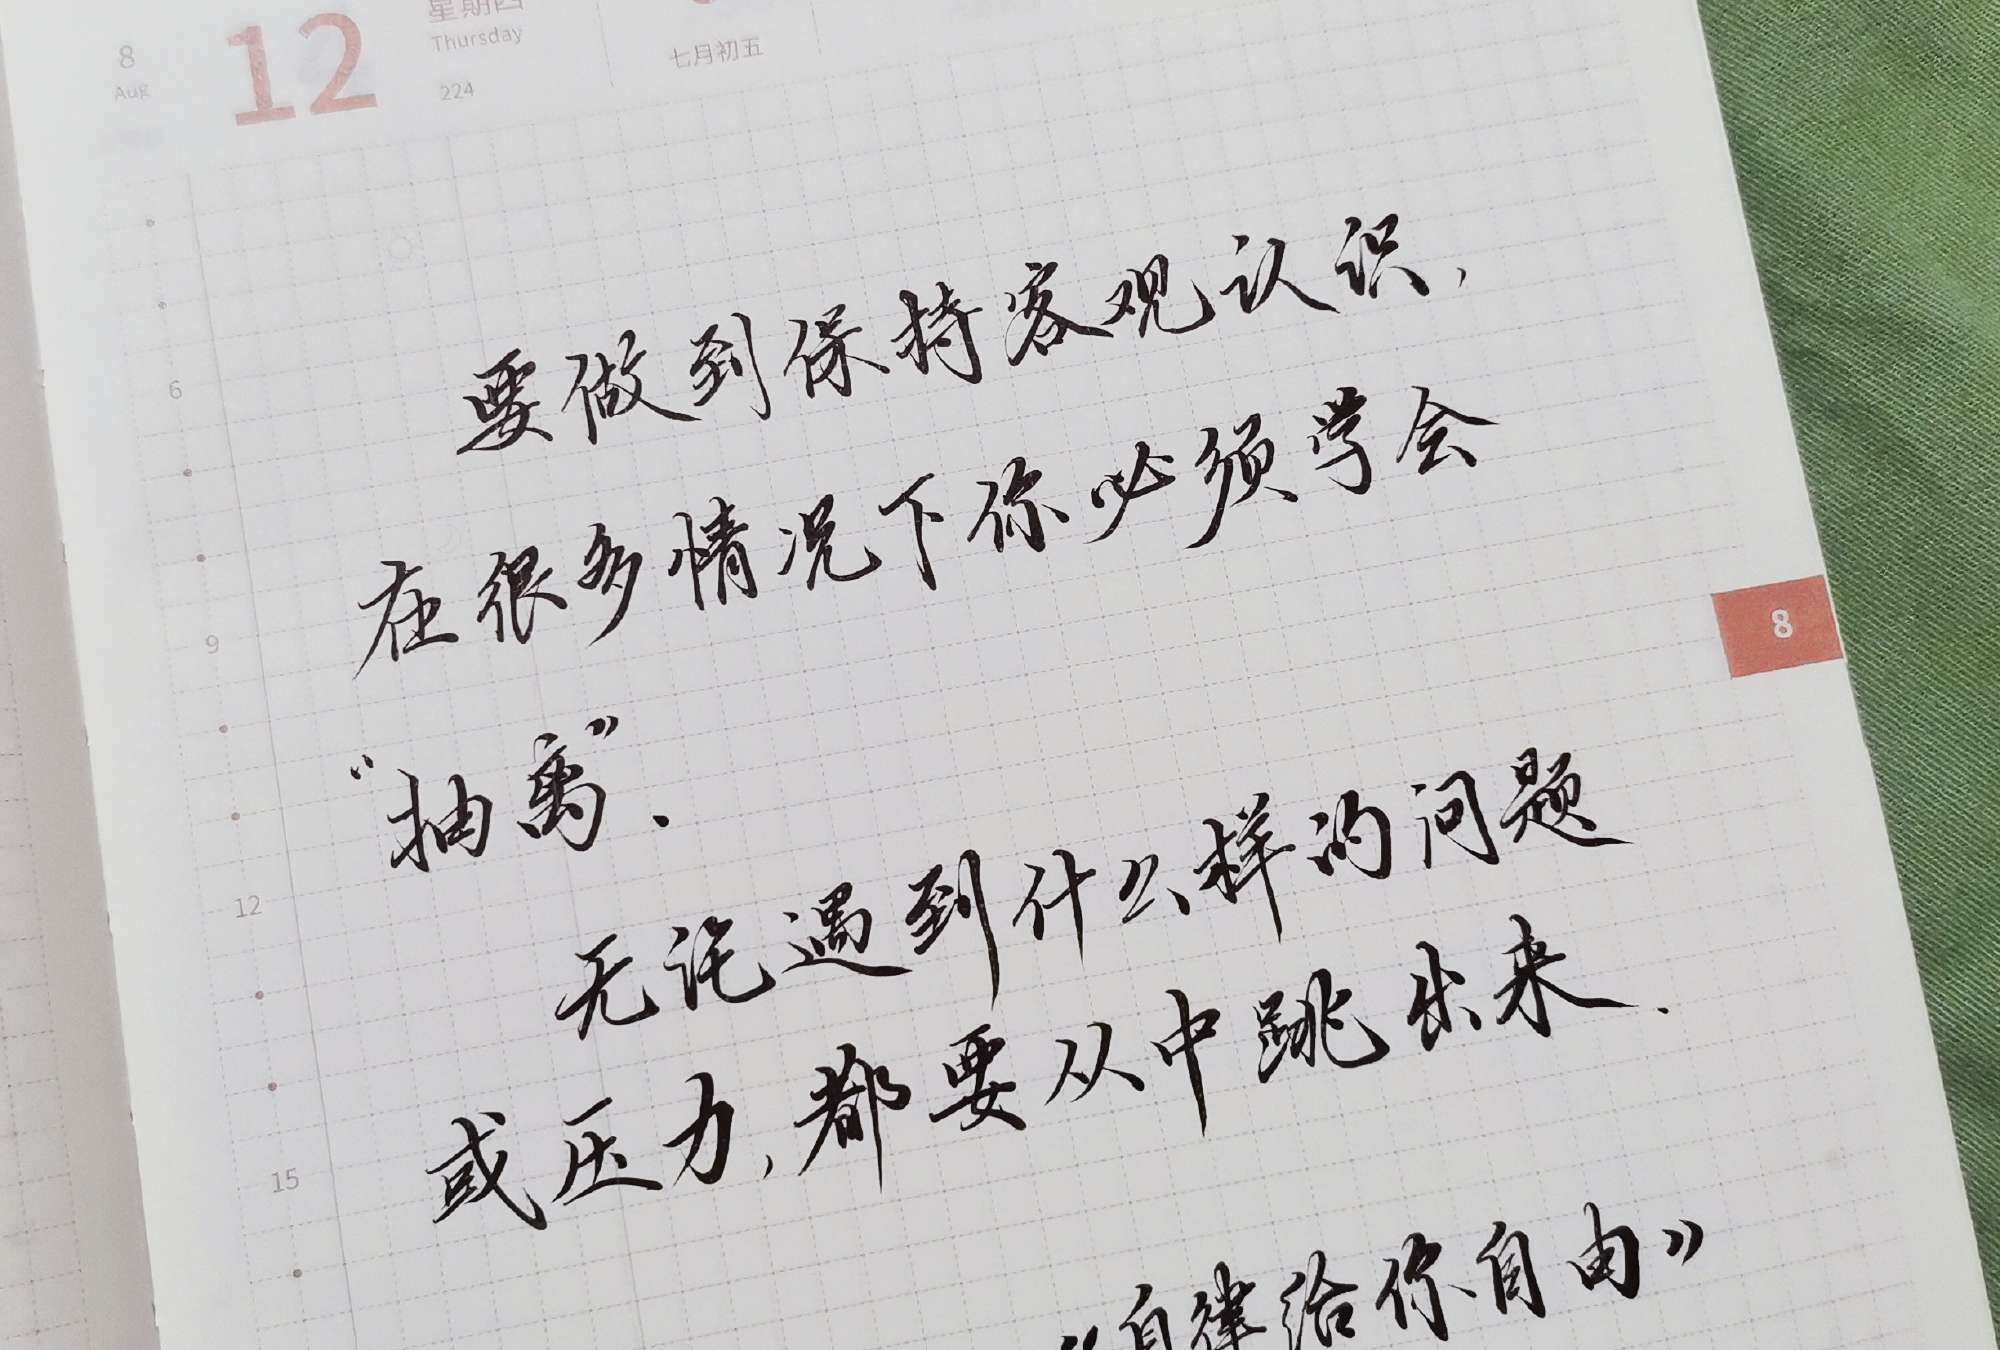 8
Aug
12
星期四
Thursday
224
七月初五
要做到保持客观认识,
在很多情况下你必须学会
“抽离”.
无论遇到什么样的问题
或压力,都要从中跳出来.
《自律给你自由》
6
9
12
15
8